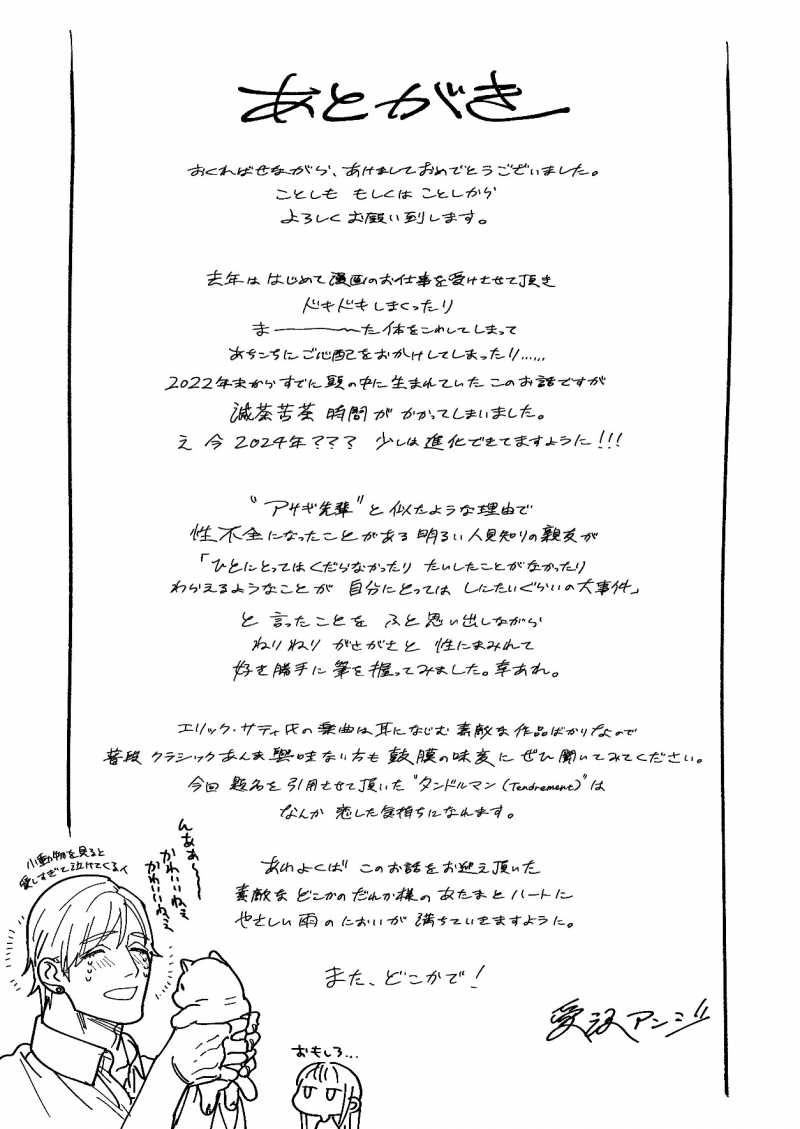 あとがき
おくればせながら、あけましておめでとうございました。
ことしも もしくは ことしから
よろしく お願い到します。
去年は はじめて 漫画のお仕事を受けさせて頂き
ドキドキ しまくったり
ま————〜た 体をこわしてしまって
あちこちに ご心配を おかけしてしまったり……
2022年末からすでに頭の中に生まれていた このお話ですが
滅茶苦茶 時間が かかってしまいました。
え 今 2024年??? 少しは進化できてますように!!!
"アサギ先輩"と 似たような理由で
性不全になったことがある 明るい人見知りの親友が
「ひとにとってはくだらなかったり たいしたことがなかったり
わらえるようなことが 自分にとっては しにたいぐらいの大事件」
と 言ったことを ふと思い出しながら
ねりねり がさがさと 性にまみれて
好き勝手に 筆を握ってみました。幸あれ。
エリック・サティ氏の楽曲は耳になじむ 素敵な作品ばかりなので
普段 クラシックあんま興味ない方も 鼓膜の味変に ぜひ聞いてみてください。
今回 題名を引用させて頂いた "タンドルマン (Tendrement)"は
なんか 恋した気持ちになれます。
あわよくば このお話をお迎え頂いた
素敵な どこかのだれか様の あたまとハートに
やさしい雨のにおいが 満ちていきますように。
また、どこかで!
アンジ
小動物を見ると
愛しすぎて泣けてくるイ
んあぁ〜〜
かわいいねぇ
かわいいねぇ
おもしろ…